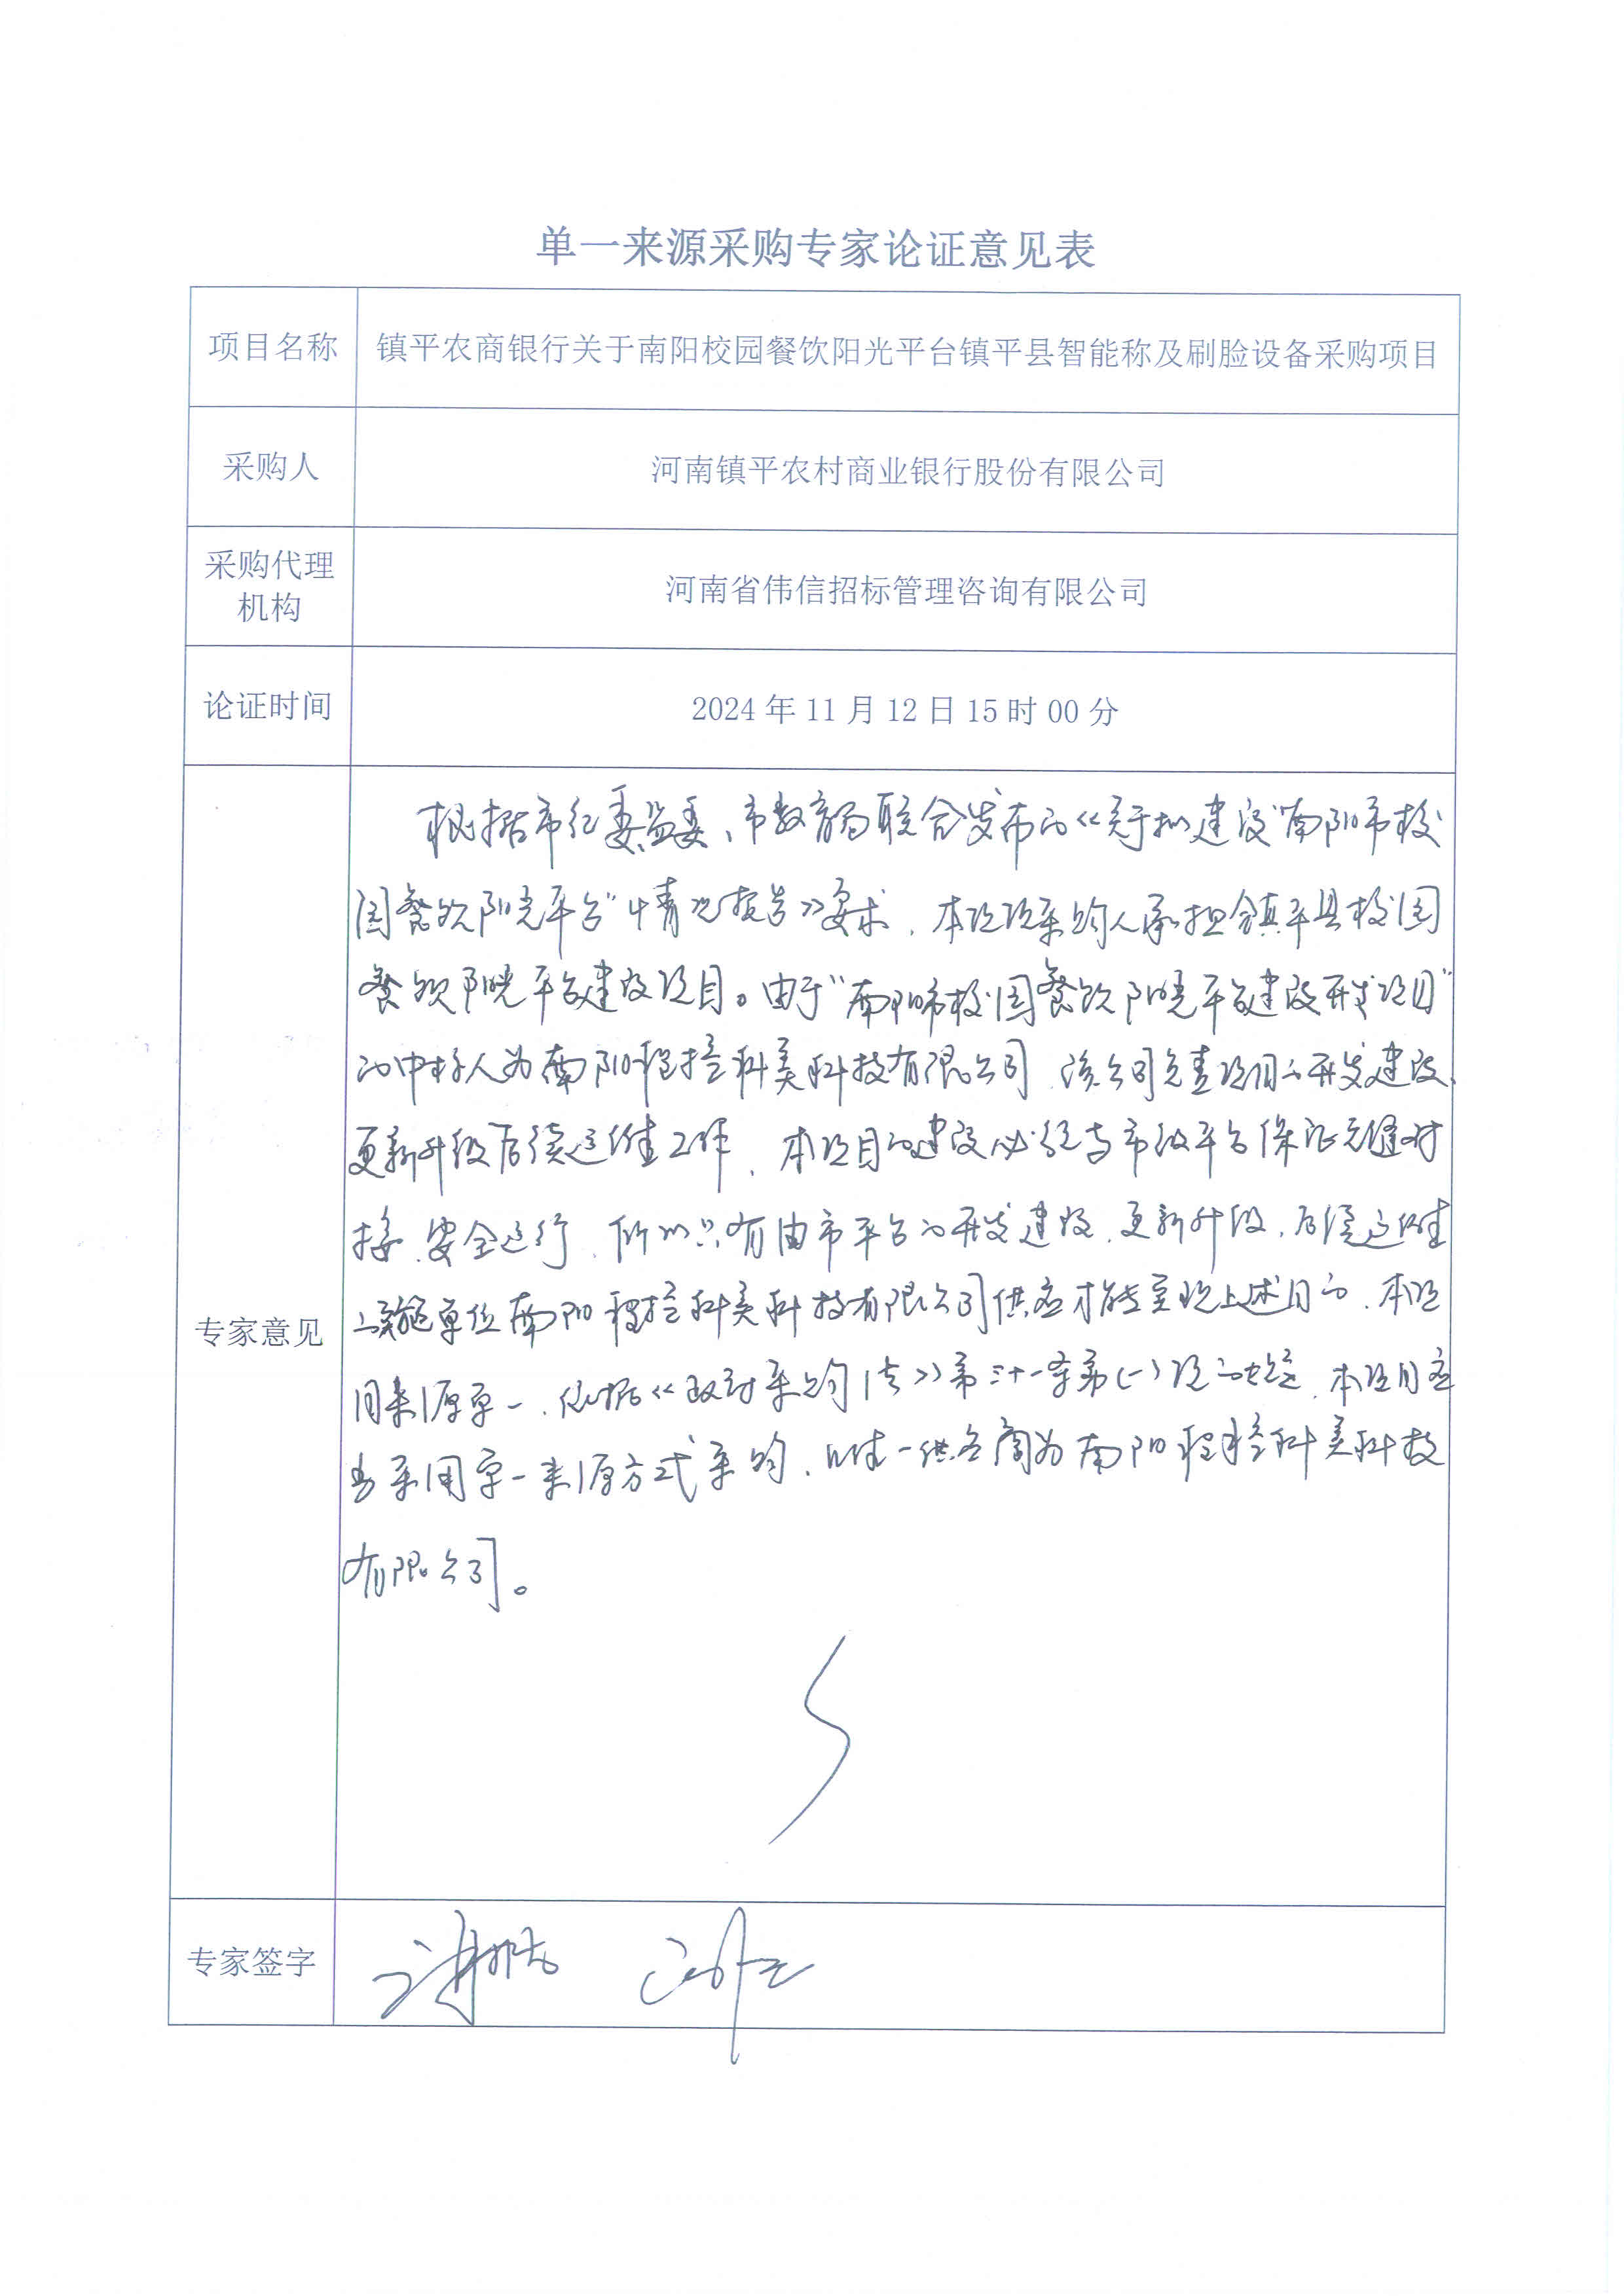 单一来源采购专家论证意见表
项目名称
镇平农商银行关于南阳校园餐饮阳光平台镇平县智能称及刷脸设备采购项目
采购人
河南镇平农村商业银行股份有限公司
采购代理
机构
河南省伟信招标管理咨询有限公司
论证时间
2024年11月12日15时00分
专家意见
根据市纪委监委、市教育局联合发布的《关于拟建设"南阳市校
园餐饮阳光平台"情况报告》要求，本项目采购人承担镇平县校园
餐饮阳光平台建设项目。由于"南阳市校园餐饮阳光平台建设开发项目"
的中标人为南阳 控科美科技有限公司，该公司负责项目的开发建设、
更新升级后续运维工作，本项目的建设必须与市级平台保证无缝对
接、安全运行，所以只有由市平台的开发建设、更新升级、后续运维
的实施单位南阳 控科美科技有限公司供应才能实现上述目的，本项
目来源单一，依据《政府采购法》第三十一条第(一)项的规定，本项目应
当采用单一来源方式采购，唯一供应商为南阳 控科美科技
有限公司。
专家签字